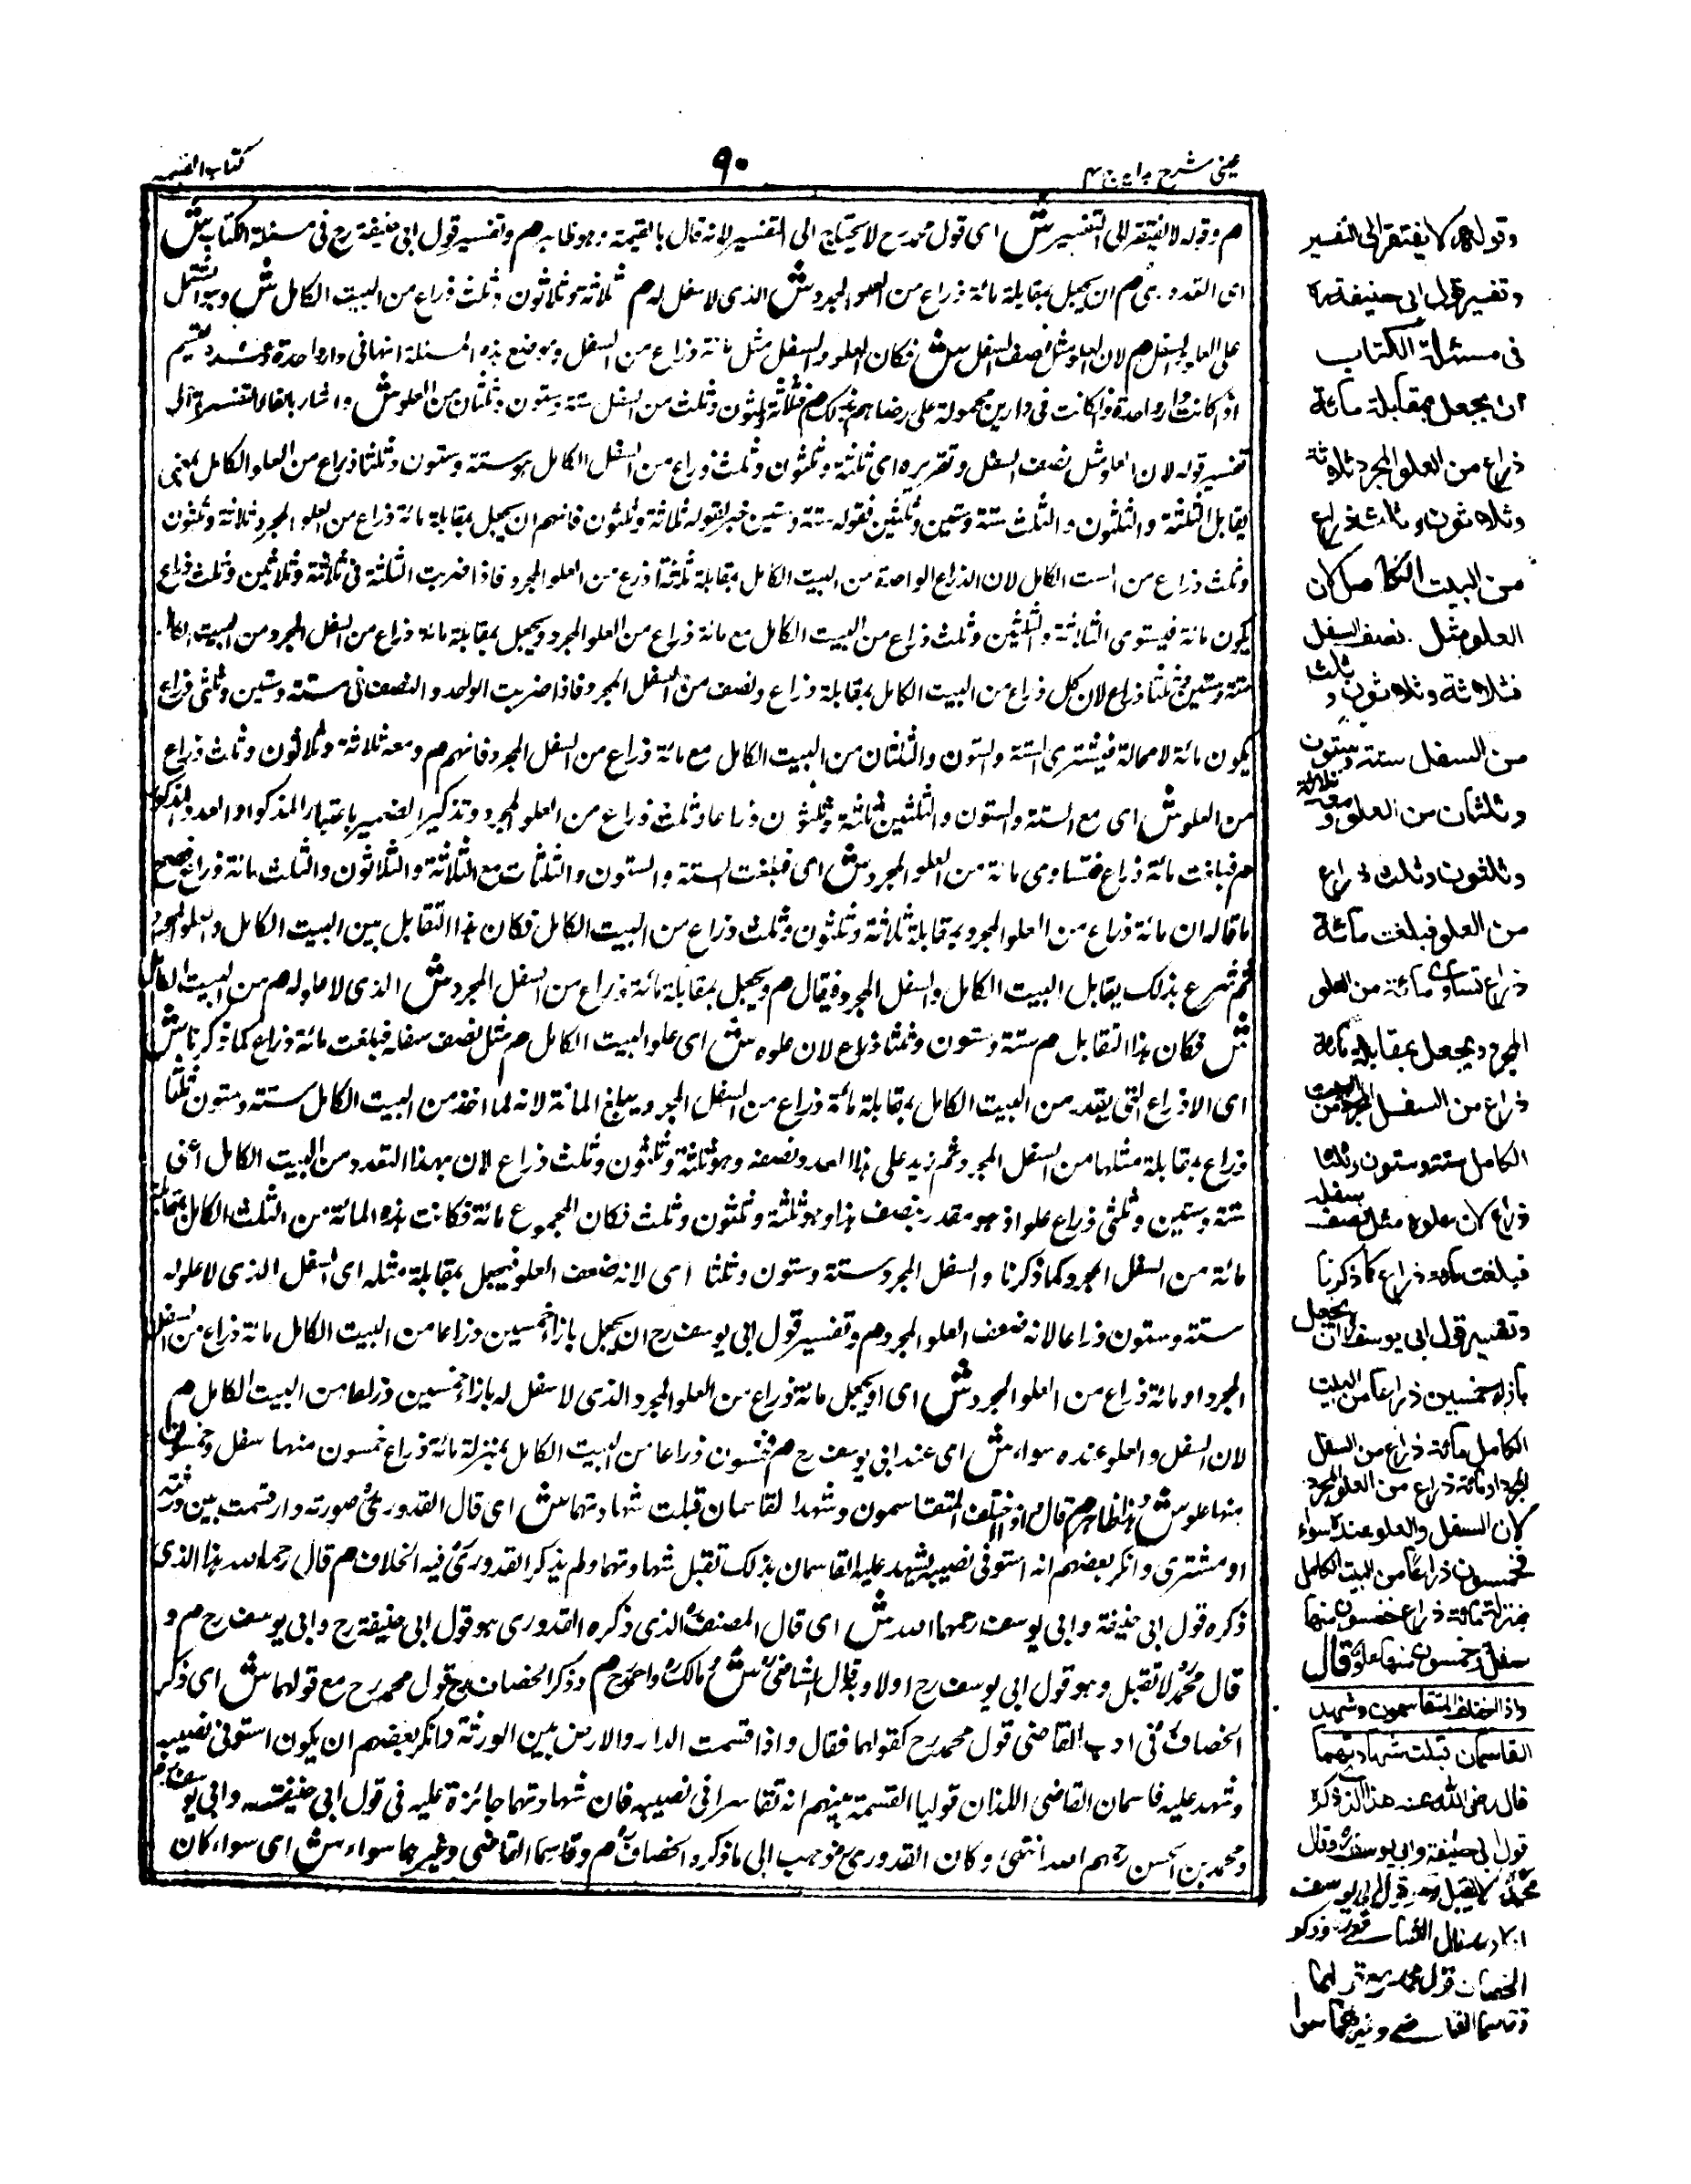 عینی شرح ہدایہ ج ۴
۹۰
کتاب القسمة
م وقوله لا یفتقر الی التفسیر ش ای قول محمد رح لا یحتاج الی التفسیر لانه قال بالقیمة وهو ظاهر م وتفسیر قول ابی حنیفة رح فی مسئلة الکتاب ش
ای القدوری م ان یجعل بمقابلة مائة ذراع من العلو المجرد ش الذی لا سفل له م ثلاثة وثلاثون وثلث ذراع من البیت الکامل ش وهو یشتمل
علی العلو والسفل م لان العلو مثل نصف السفل ش فکان العلو والسفل مثل مائة ذراع من السفل وموضع هذه المسئلة انها فی دار واحدة
اذا کانت واحدة واذا کانت فی دارین محمولة علی رضاهم بذلک م فثلاثة وثلثون وثلث من السفل ستة وستون وثلثان من العلو ش واشار بالفاء التفسیریة الی
تفسیر قوله لان العلو مثل نصف السفل وتقریره ای ثلثة وثلثون وثلث ذراع من السفل الکامل هو ستة وستون وثلثا ذراع من العلو الکامل یعنی
یقابل الثلثة والثلثون والثلث ستة وستین وثلثین فقوله ستة وستین خبر لقوله ثلاثة وثلثون فافهم ان یجعل بمقابلة مائة ذراع من العلو المجرد ثلاثة وثلثون
وثلث ذراع من البیت الکامل لان الذراع الواحدة من البیت الکامل بمقابلة ثلثة اذرع من العلو المجرد فاذا ضربت الثلثة فی ثلاثة وثلاثین وثلث ذراع
یکون مائة فیستوی الثلاثة والثلثین وثلث ذراع من البیت الکامل مع مائة ذراع من العلو المجرد ویجعل بمقابلة مائة ذراع من السفل المجرد من البیت الکامل
ستة وستین وثلثا ذراع لان کل ذراع من البیت الکامل بمقابلة ذراع ونصف من السفل المجرد فاذا ضربت الواحد والنصف فی ستة وستین وثلثی ذراع
یکون مائة لا محالة فیشتری الستة والستون والثلثان من البیت الکامل مع مائة ذراع من السفل المجرد فافهم م ومعه ثلاثة وثلاثون وثلث ذراع
من العلو ش ای مع الستة والستون والثلثین ثلثة وثلثون ذراعا وثلث ذراع من العلو المجرد وتذکیر الضمیر باعتبار المذکور او العدد المذکور
م فبلغت مائة ذراع فتساوی مائة من العلو المجرد ش ای فبلغت الستة والستون والثلثان مع الثلاثة والثلاثون والثلث مائة ذراع فصح
ما قاله ان مائة ذراع من العلو المجرد بمقابلة ثلاثة وثلثون وثلث ذراع من البیت الکامل فکان هذا التقابل بین البیت الکامل والعلو المجرد
ثم شرع بذلک یقابل البیت الکامل والسفل المجرد فقال م ویجعل بمقابلة مائة ذراع من السفل المجرد ش الذی لا علو له م من البیت الکامل
ش فکان هذا التقابل م ستة وستون وثلثا ذراع لان علوه ش ای علو البیت الکامل م مثل نصف سفله فبلغت مائة ذراع کما ذکرنا ش
ای الاذراع التی یقدر من البیت الکامل بمقابلة مائة ذراع من السفل المجرد یبلغ المائة لانه لما اخذ من البیت الکامل ستة وستون وثلثا
ذراع بمقابلة مثلها من السفل المجرد ثم زید علی هذا العدد ونصفه وهو ثلثة وثلثون وثلث ذراع لان بهذا القدر من البیت الکامل أعنی
ستة وستین وثلثی ذراع علوا ذهو مقدر بنصف هذا وهو ثلثة وثلثون وثلث فکان المجموع مائة فکانت هذه المائة من الثلث الکامل بمقابلة
مائة من السفل المجرد کما ذکرنا والسفل المجرد ستة وستون وثلثا ای لانه ضعف العلو فیجعل بمقابلة مثله ای السفل الذی لا علو له
ستة وستون ذراعا لانه ضعف العلو المجرد م وتفسیر قول ابی یوسف رح ان یجعل بازاء خمسین ذراعا من البیت الکامل مائة ذراع من السفل
المجرد او مائة ذراع من العلو المجرد ش ای او یجعل مائة ذراع من العلو المجرد الذی لا سفل له بازاء خمسین ذراعا من البیت الکامل م
لان السفل والعلو عنده سواء ش ای عند ابی یوسف رح م فخمسون ذراعا من البیت الکامل بمنزلة مائة ذراع خمسون منها سفل وخمسون
منها علو ش هذا ظاهر م قال واذا اختلف المتقاسمون وشهد القاسمان قبلت شهادتهما ش ای قال القدوری صورته دار قسمت بین ورثة
او مشتری وانکر بعضهم انه استوفی نصیبه فشهد علیه القاسمان بذلک تقبل شهادتهما ولم یذکر القدوری فیه الخلاف م قال رحمه الله هذا الذی
ذکره قول ابی حنیفة وابی یوسف رحمهما الله ش ای قال المصنف الذی ذکره القدوری هو قول ابی حنیفة رح وابی یوسف رح م و
قال محمد لا تقبل وهو قول ابی یوسف رح اولا وبه قال الشافعی ش ومالک واحمد م وذکر الخصاف رح قول محمد رح مع قولهما ش ای ذکر
الخصاف فی ادب القاضی قول محمد رح کقولهما فقال واذا قسمت الدار والارض بین الورثة وانکر بعضهم ان یکون استوفی نصیبه
وشهد علیه قاسمان القاضی اللذان تولیا القسمة بینهم انه تقاسرا فی نصیبه فان شهادتهما جائزة علیه فی قول ابی حنیفة وابی یوسف
ومحمد بن الحسن رحمهم الله انتهی وکان القدوری ذهب الی ما ذکره الخصاف م وقاسما القاضی وغیرهما سواء ش ای سواء کان
وقول محمد لا یفتقر الی التفسیر
وتفسیر قول ابی حنیفة
فی مسئلة الکتاب
ان یجعل بمقابلة مائة
ذراع من العلو المجرد ثلاثة
وثلاثون وثلث ذراع
من البیت الکامل لان
العلو مثل نصف السفل
فثلاثة وثلاثون وثلث
من السفل ستة وستون
وثلثان من العلو ومعه ثلاثة
وثلثون وثلث ذراع
من العلو فبلغت مائة
ذراع تساوی مائة من العلو
المجرد ویجعل بمقابلة مائة
ذراع من السفل المجرد من البیت
الکامل ستة وستون وثلثا
ذراع لان علوه مثل نصف سفله
فبلغت مائة ذراع کما ذکرنا
وتفسیر قول ابی یوسف ان یجعل
بازاء خمسین ذراعا من البیت
الکامل مائة ذراع من السفل
المجرد او مائة ذراع من العلو المجرد
لان السفل والعلو عنده سواء
فخمسون ذراعا من البیت الکامل
بمنزلة مائة ذراع خمسون منها
سفل وخمسون منها علو قال
واذا اختلف المتقاسمون وشهد
القاسمان قبلت شهادتهما
قال رضی الله عنه هذا الذی ذکره
قول ابی حنیفة وابی یوسف وقال
محمد لا یقبل وهو قول ابی یوسف
اولا وبه قال الشافعی وذکر
الخصاف قول محمد مع قولهما
وقاسما القاضی وغیرهما سواء